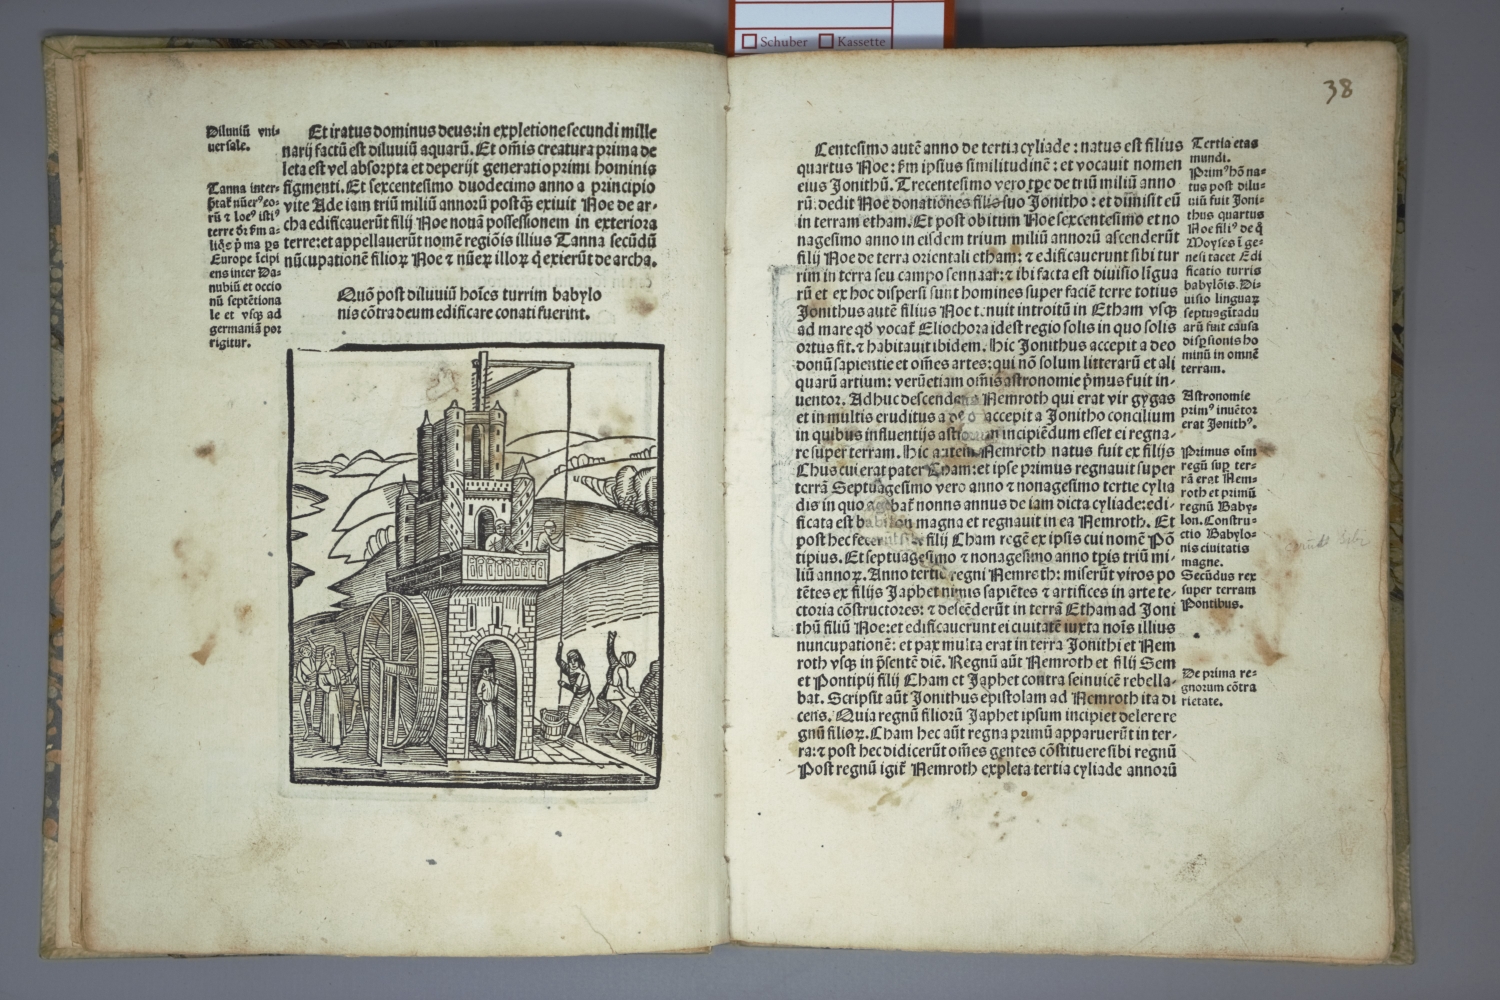 Schuber Kassette
38
Diluuiū vni-
uersale.
Tanna inter-
rū ⁊ loc⁹ isti⁹
terre dr̄ fm̄ a-
Europe īcipi
ens inter Da-
nubiū et occio
nū septētiona
le et vsq; ad
germaniā por
rigitur.
Et iratus dominus deus: in expletione secundi mille
narij factū est diluuiū aquarū. Et om̄is creatura prima de
leta est vel absorpta et deperijt generatio primi hominis
figmenti. Et sexcentesimo duodecimo anno a principio
vite Ade iam triū miliū annorū postq̄ȝ exiuit Noe de ar-
cha edificauerūt filij Noe nouā possessionem in exteriora
terre: et appellauerūt nomē regiōis illius Tanna secūdū
nūcupationē filioꝝ Noe ⁊ nūeꝝ illoꝝ q̄ exierūt de archa.
Quō post diluuiū hoīes turrim babylo
nis cōtra deum edificare conati fuerint.
Centesimo autē anno de tertia cyliade: natus est filius
quartus Noe: fm̄ ipsius similitudinē: et vocauit nomen
eius Jonithū. Trecentesimo vero tp̄e de triū miliū anno
rū: dedit Noe donationes filio suo Jonitho: et dimisit eū
in terram etham. Et post obitum Noe sexcentesimo et no
nagesimo anno in eisdem trium miliū annorū ascenderūt
filij Noe de terra orientali etham: ⁊ edificauerunt sibi tur
rim in terra seu campo sennaar: ⁊ ibi facta est diuisio līgua
rū et ex hoc dispersi sunt homines super faciē terre totius
Jonithus autē filius Noe tenuit introitū in Etham vsq;
ad mare qd̄ vocat̄ Eliochora idest regio solis in quo solis
ortus fit. ⁊ habitauit ibidem. Hic Jonithus accepit a deo
donū sapientie et om̄es artes: qui nō solum litterarū et ali
quarū artium: verū etiam om̄is astronomie p̄mus fuit in-
uentor. Ad huc descendens Nemroth qui erat vir gygas
et in multis eruditus a deo accepit a Jonitho concilium
in quibus influentijs astrorum incipiēdum esset ei regna-
re super terram. Hic autem Nemroth natus fuit ex filijs
Chus cui erat pater Cham: et ipse primus regnauit super
terrā Septuagesimo vero anno ⁊ nonagesimo tertie cylia
dis in quo nonns annus de iam dicta cyliade: edi-
ficata est babilon magna et regnauit in ea Nemroth. Et
post hec fecerunt sibi filij Cham regē ex ipsis cui nomē Pō
tipius. Et septuagesimo ⁊ nonagesimo anno tp̄is triū mi-
liū annoꝝ. Anno tertio regni Nemroth: miserūt viros po
tētes ex filijs Japhet nimis sapiētes ⁊ artifices in arte te-
ctoria cōstructores: ⁊ descēderūt in terrā Etham ad Joni
thū filiū Noe: et edificauerunt ei ciuitatē iuxta noīs illius
nuncupationē: et pax multa erat in terra Jonithi et Nem
roth vsq; in p̄sentē diē. Regnū aūt Nemroth et filij Sem
et Pontipij filij Cham et Japhet contra seinuicē rebella-
bat. Scripsit aūt Jonithus epistolam ad Nemroth ita di
cens. Quia regnū filiorū Japhet ipsum incipiet delere re
gnū filioꝝ. Cham hec aūt regna primū apparuerūt in ter-
ra: ⁊ post hec didicerūt om̄es gentes cōstituere sibi regnū
Post regnū igit̄ Nemroth expleta tertia cyliade annorū
Tertia etas
mundi.
Prim⁹ hō na-
tus post dilu-
uiū fuit Joni-
thus quartus
Noe fili⁹ de q̄
Moyses ī ge-
nesi tacet Edi
ficatio turris
babylōis. Di-
uisio linguaꝝ
septuagītadu
arū fuit causa
disp̄sionis ho
minū in omnē
terram.
Astronomie
prim⁹ inuētor
erat Jonith⁹.
Primus oīm
regū sup̄ ter-
rā erat Nem-
roth et primū
regnū Baby-
lon. Constru-
ctio Babylo-
nis ciuitatis
magne.
Secūdus rex
super terram
Pontibus.
De prima re-
gnorum cōtra
rietate.